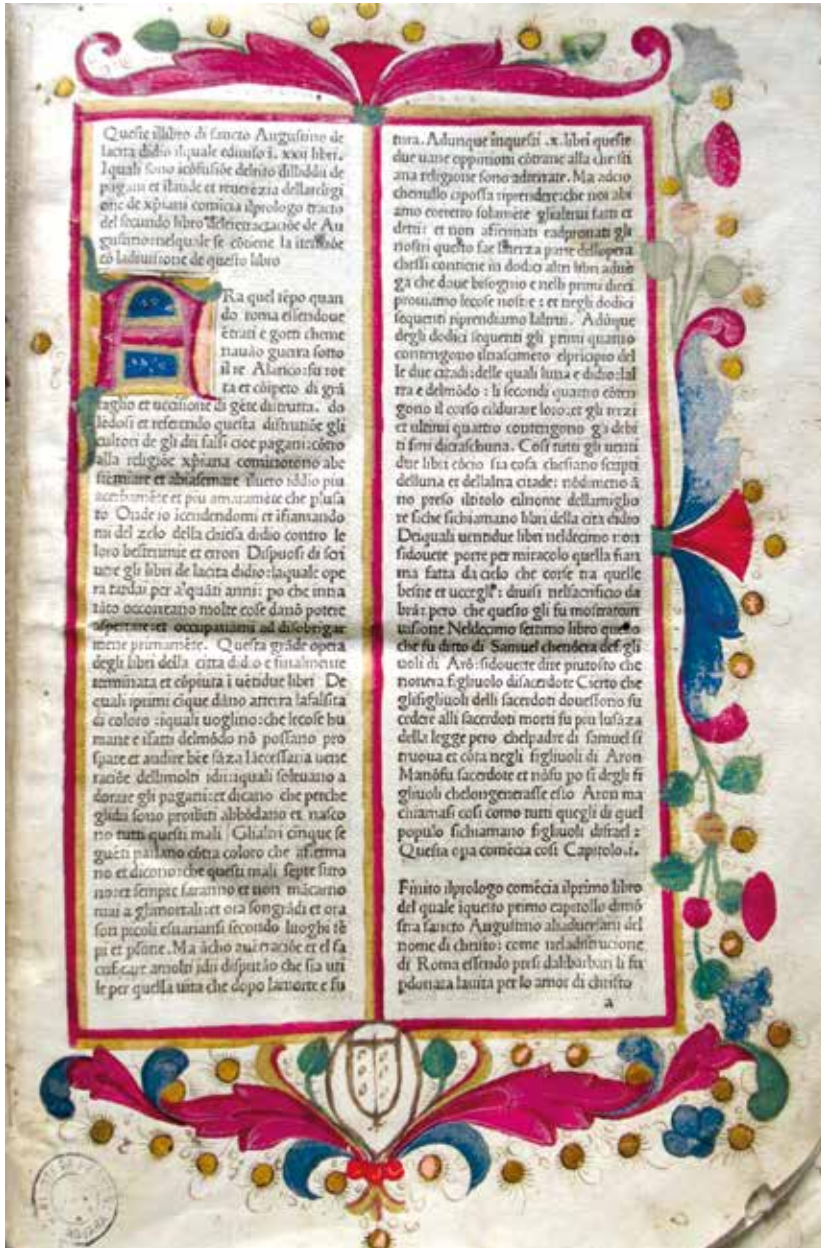 Queste illibro di sancto Augustino de
lacita didio ilquale ediuiso ī. xxii libri.
Iquali sono icōfusiōe delrito dilliddii de
pagani et ilaude et reuerēzia dellarelegi
one de xp̄iana comīcia ilprologo tracto
del secundo libro delle retractaciōe de Au
gustino: nelquale se cōtiene la itentiōe
cō ladiuisione de questo libro
ERa quel tēpo quan
do roma essendoue
ētrati e gotti cheme
nauāo guerra sotto
il re Alarico: fu rot
ta et cōipeto di grā
taglio et uccisione di gēte distrutta. do
lēdosi et referendo questa distrutiōe gli
cultori de gli dii falsi cioe pagani: cōtro
alla religiōe xp̄iana comintorono abe
stēmiare et abiasemare iluero iddio piu
acerbamēte et piu amaramēte che plusa
to Onde io icendendomi et ifiamando
mi del zelo della chiesa didio contro le
loro bestemmie et errori Disposi di scri
uere gli libri de lacita didio: laquale ope
ra tardai per alquāti anni: po che inna
tāto occorreano molte cose danō potere
aspettare: et occupauami ad disobrigar
mene primamēte. Questa grāde opera
degli libri della citta didio e finalmente
terminata et cōpiuta ī uētidue libri De
quali iprimi cīque dāno atterra lafalsita
di coloro : iquali uoglino: che lecose hu
mane e ifatti delmōdo nō possano pro
spare et audire bēe sāza lacessaria uene
raciōe dellimolti idii: iquali soleuano a
dorare gli pagani: et dicano che perche
glidii sono proibiti abbōdano et nasco
no tutti questi mali Glialtri cinque se
guēti parlano cōtra coloro che afferma
no et dicono: che questi mali sepre furo
no: et sempre saranno et non mācarno
mai a glimortali: et ora songrādi et ora
son picoli esuariansi secondo luoghi tē
pi et psone. Ma ācho auētaciōe et el sa
crificare amolti idii disputāo che sia uti
le per quella uita che dopo lamorte e fu
tura. Adunque inquesti .x. libri queste
due uane oppinioni cōtrarie alla christi
ana religione sono aterrate. Ma adcio
chenullo cipossa riprendere: che noi abi
amo corretto solamēte glialtrui fatti et
detti: et non affermati eadpronati gli
nostri questo fae laterza parte dellopera
chessi contiene in dodici altri libri aduē
ga che daue bisogno e nelli primi dieci
prouiamo lecose nostre : et negli dodici
sequenti riprendiamo laltrui. Adūque
degli dodici sequenti gli primi quatro
contengono ilnascimēto elpricipio del
le due citadi: delle quali luna e didio: lal
tra e delmōdo : li secondi quatro cōten
gono il corso eildurare loro: et gli terzi
et ultimi quattro contengono gli debi
ti fini diciaschuna. Cosi tutti gli uenti
due libri cōcio sia cosa chesiano scripti
delluna et dellaltra citade: nōdimeno ā
no preso iltitolo eilnome dellamiglio
re siche sichiamano libri della cita didio
Deiquali uentidue libri neldecimo non
sidouete porre per miracolo quella fiam
ma fatta da cielo che corse tra quelle
bestie et uccegli: diuisi nelsacrificio da
brā: pero che questo gli fu mostrato in
uisione Neldecimo settimo libro quello
che fu ditto di Samuel chenōera def gli
uoli di Arō: sidouette dire piutosto che
nonera figliuolo disacerdote Cierto che
glifigliuoli delli sacerdoti douessono su
cedere alli sacerdoti morti fu piu lusāza
della legge pero chelpadre di samuel si
truoua et cōta negli figliuoli di Aron
Manōfu sacerdote et nōfu po si degli fi
gliuoli chelongenerasse esso Aron ma
chiamasi cosi como tutti quegli di quel
populo sichiamano figliuoli disrael :
Questa opa comēcia cosi Capitolo. i.
Finito ilprologo comēcia ilprimo libro
del quale iquesto primo capitollo dimō
stra sancto Augustino aliaduersarii del
nome di christo: come neladistrucione
di Roma essendo presi dalibarbari li fu
pdonata lauita per lo amor di christo
a